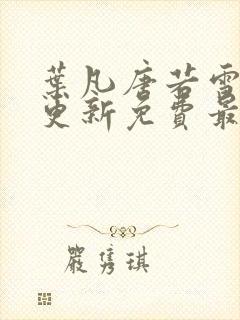 葉凡唐若雪
更新免費最
嚴雋琪